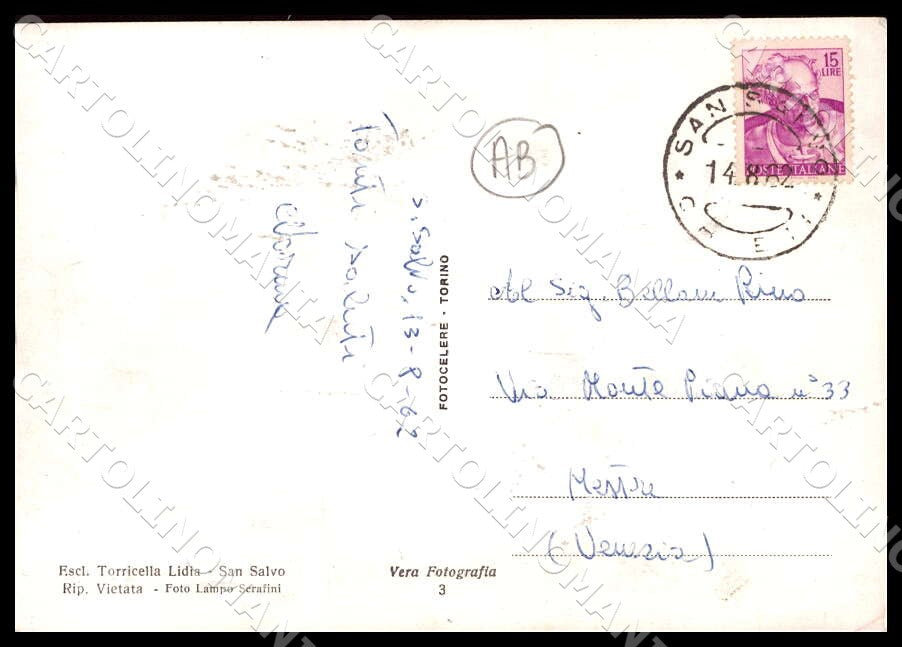 15
LIRE
POSTE ITALIANE
SAN
14.8.62
AB
S. Salvo, 13-8-62
Tanti saluti
FOTOCELERE - TORINO
Al Sig. Bellan Rino
Via Monte Piana n° 33
Mestre
(Venezia)
Escl. Torricella Lidia - San Salvo
Rip. Vietata - Foto Lampo Serafini
Vera Fotografia
3
CARTOLINOMANIA